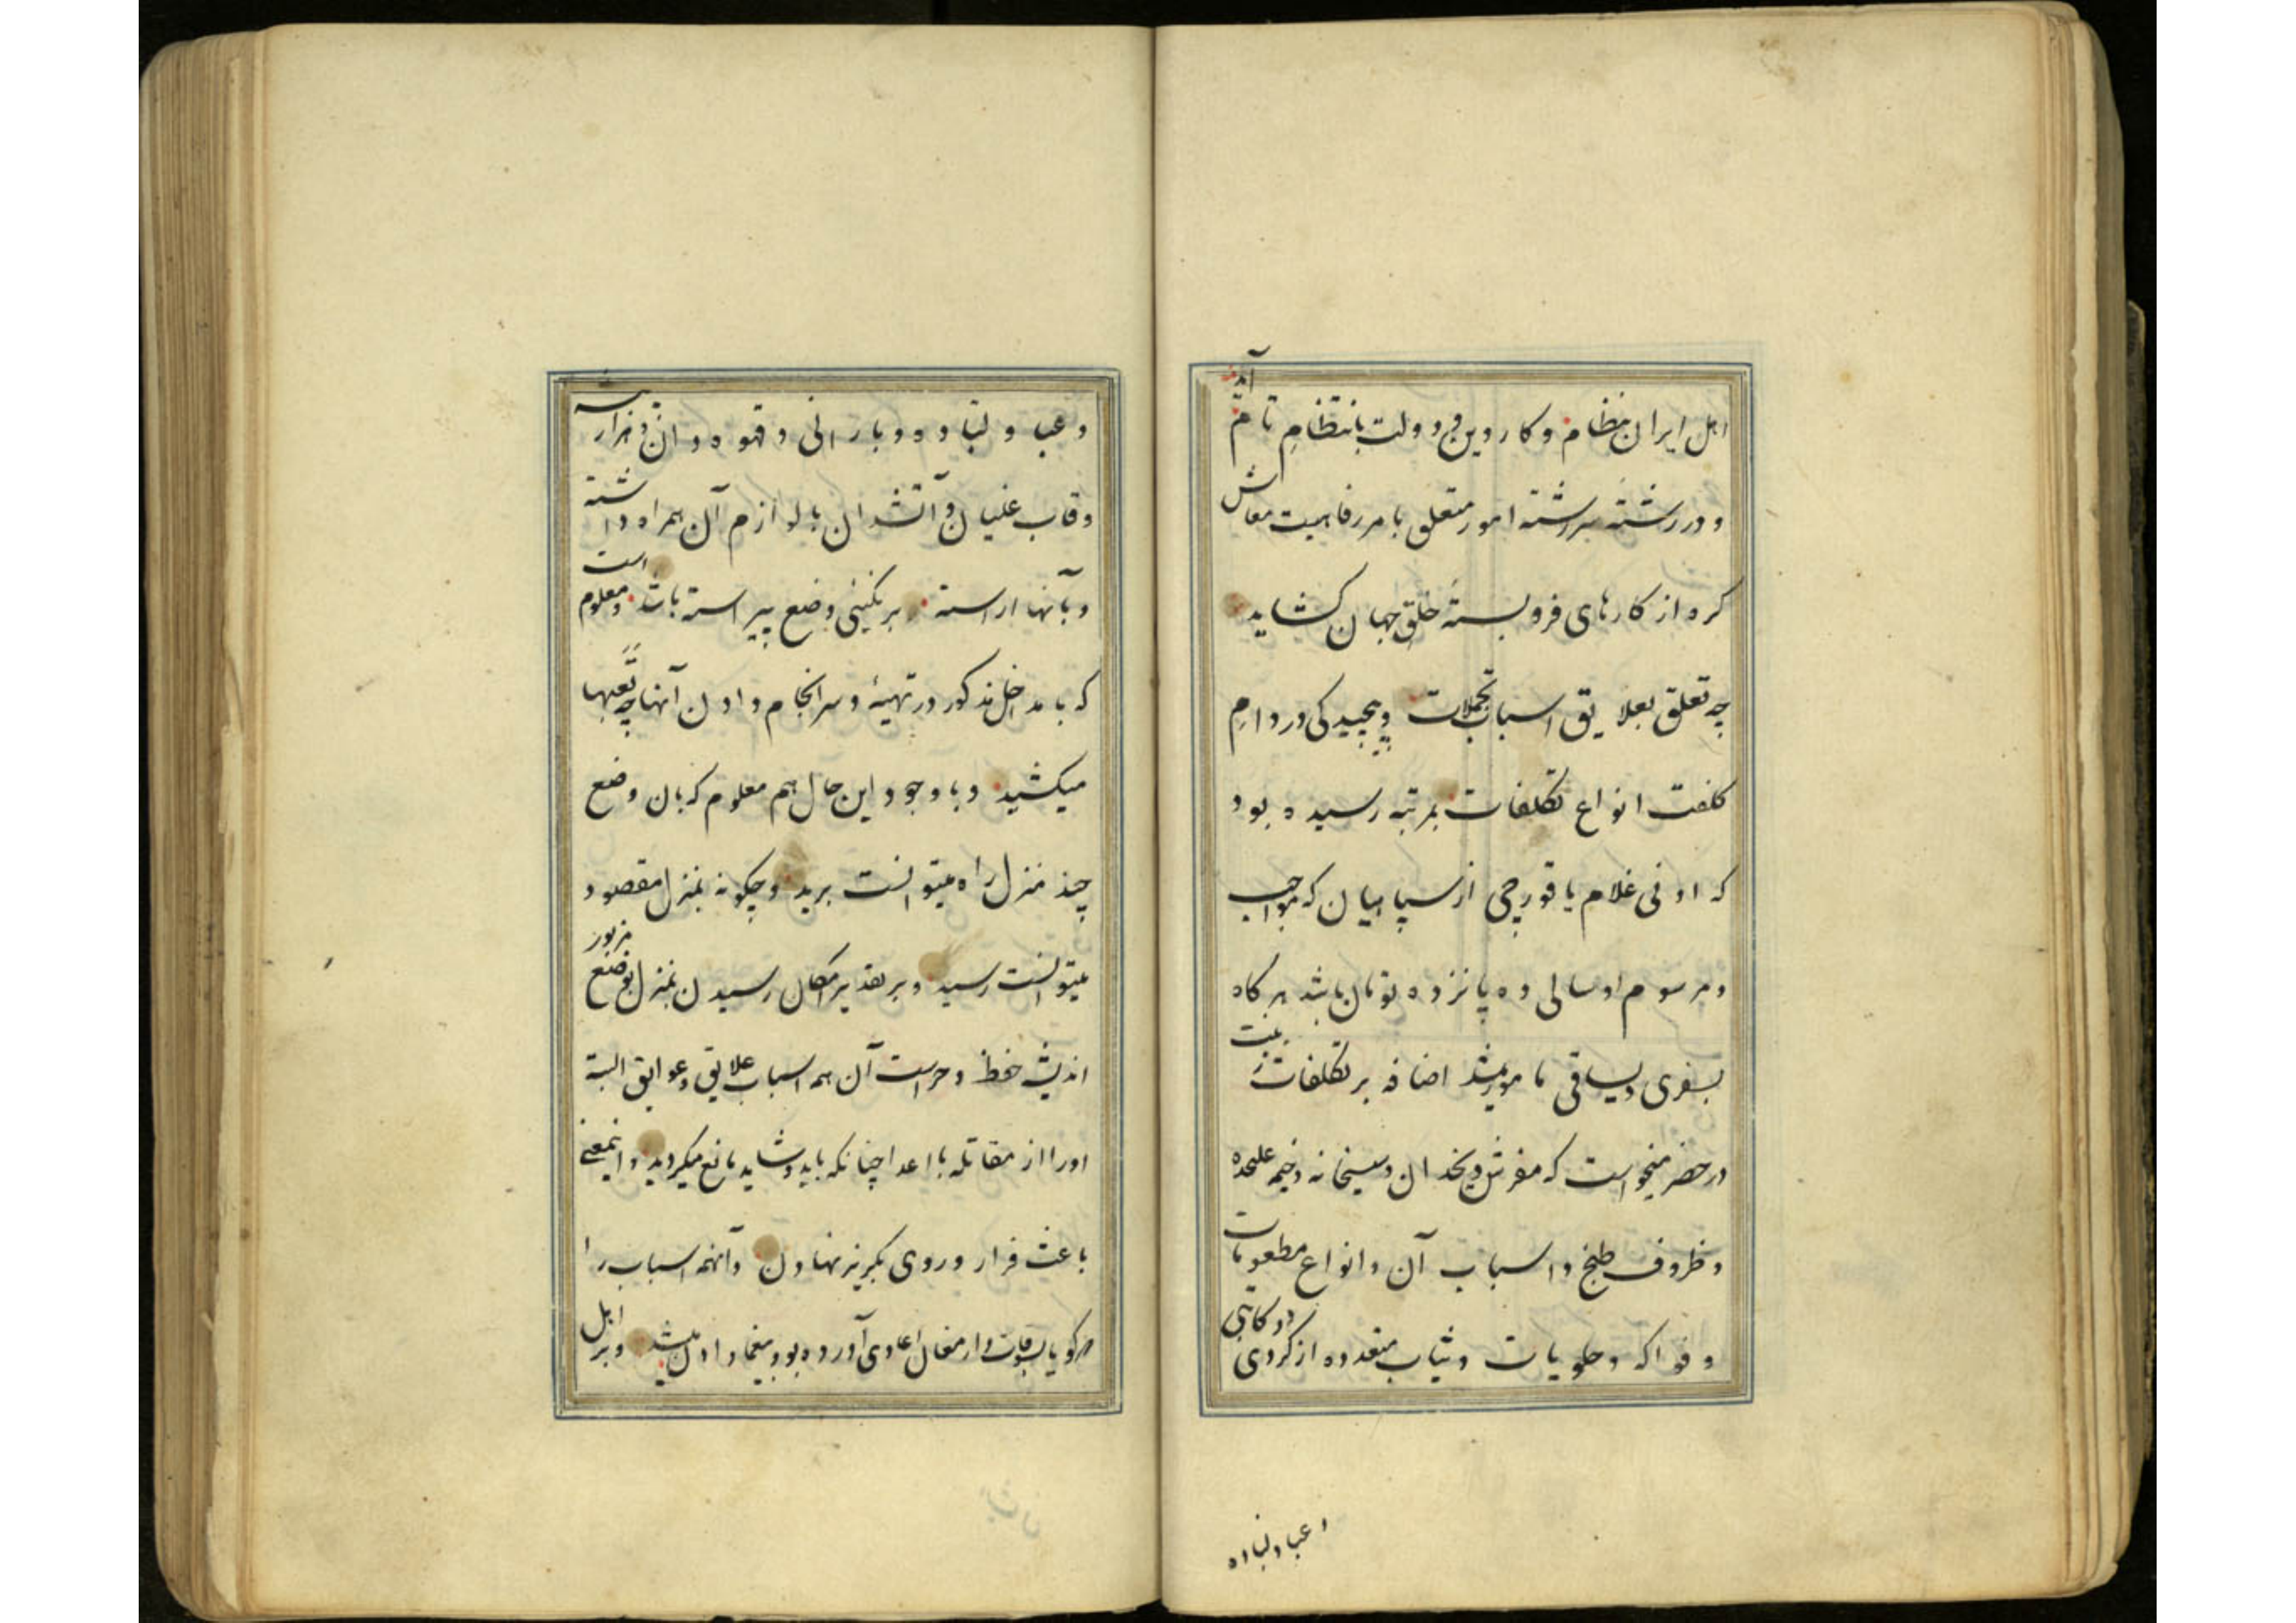 اهل ایران بنظام و کار دین و دولت بانتظام تام آید
و در رشته سررشته امور متعلق بامر رفاهیت معاش
کره از کارهای فروبستهٔ خلق جهان کشاید
چه تعلق بعلایق اسباب تجملات و پیچیدکی در دام
کلفت انواع تکلفات بمرتبه رسیده بود
که ادنی غلام یا قورچی از سپاهیان که مواجب
و مرسوم او سالی ده پانزده تومان باشد هر کاه
بسفری و یساقی مامور میشد اضافه بر تکلفات زینت
در حضر میخواست که مفرش و یخدان و سیخانه و خیمه علیحده
و ظروف طبخ و اسباب آن و انواع مطعومات
و فواکه و حلویات و ثیاب متعدده از کردی و دکانی
و عبا و لباده
و عبا و لباده و بارانی و قهوه دان و هزار پیشه
و قاب غلیان و آتشدان با لوازم آن همراه داشته
و بآنها اراسته بر نکینی وضع پیراسته باشد و معلوم است
که با مداخل مذکور در تهیهٔ و سرانجام دادن آنها چه تعبها
میکشید و با وجود این حال هم معلوم که بان وضع
چند منزل راه میتوانست برید و چکونه بمنزل مقصود
میتوانست رسید و بر تقدیر امکان رسیدن بمنزل بوضع مزبور
اندیشه حفظ و حراست آن همه اسباب علایق و عوایق البته
اورا از مقاتله با اعدا چنانکه باید و شاید مانع میکردید و اینمعنی
باعث فرار و روی بکریز نهادن و آنهمه اسباب را
که کویا بسوقات و ارمغان اعادی آورده بود بیغما دادن میشد و بر اهل